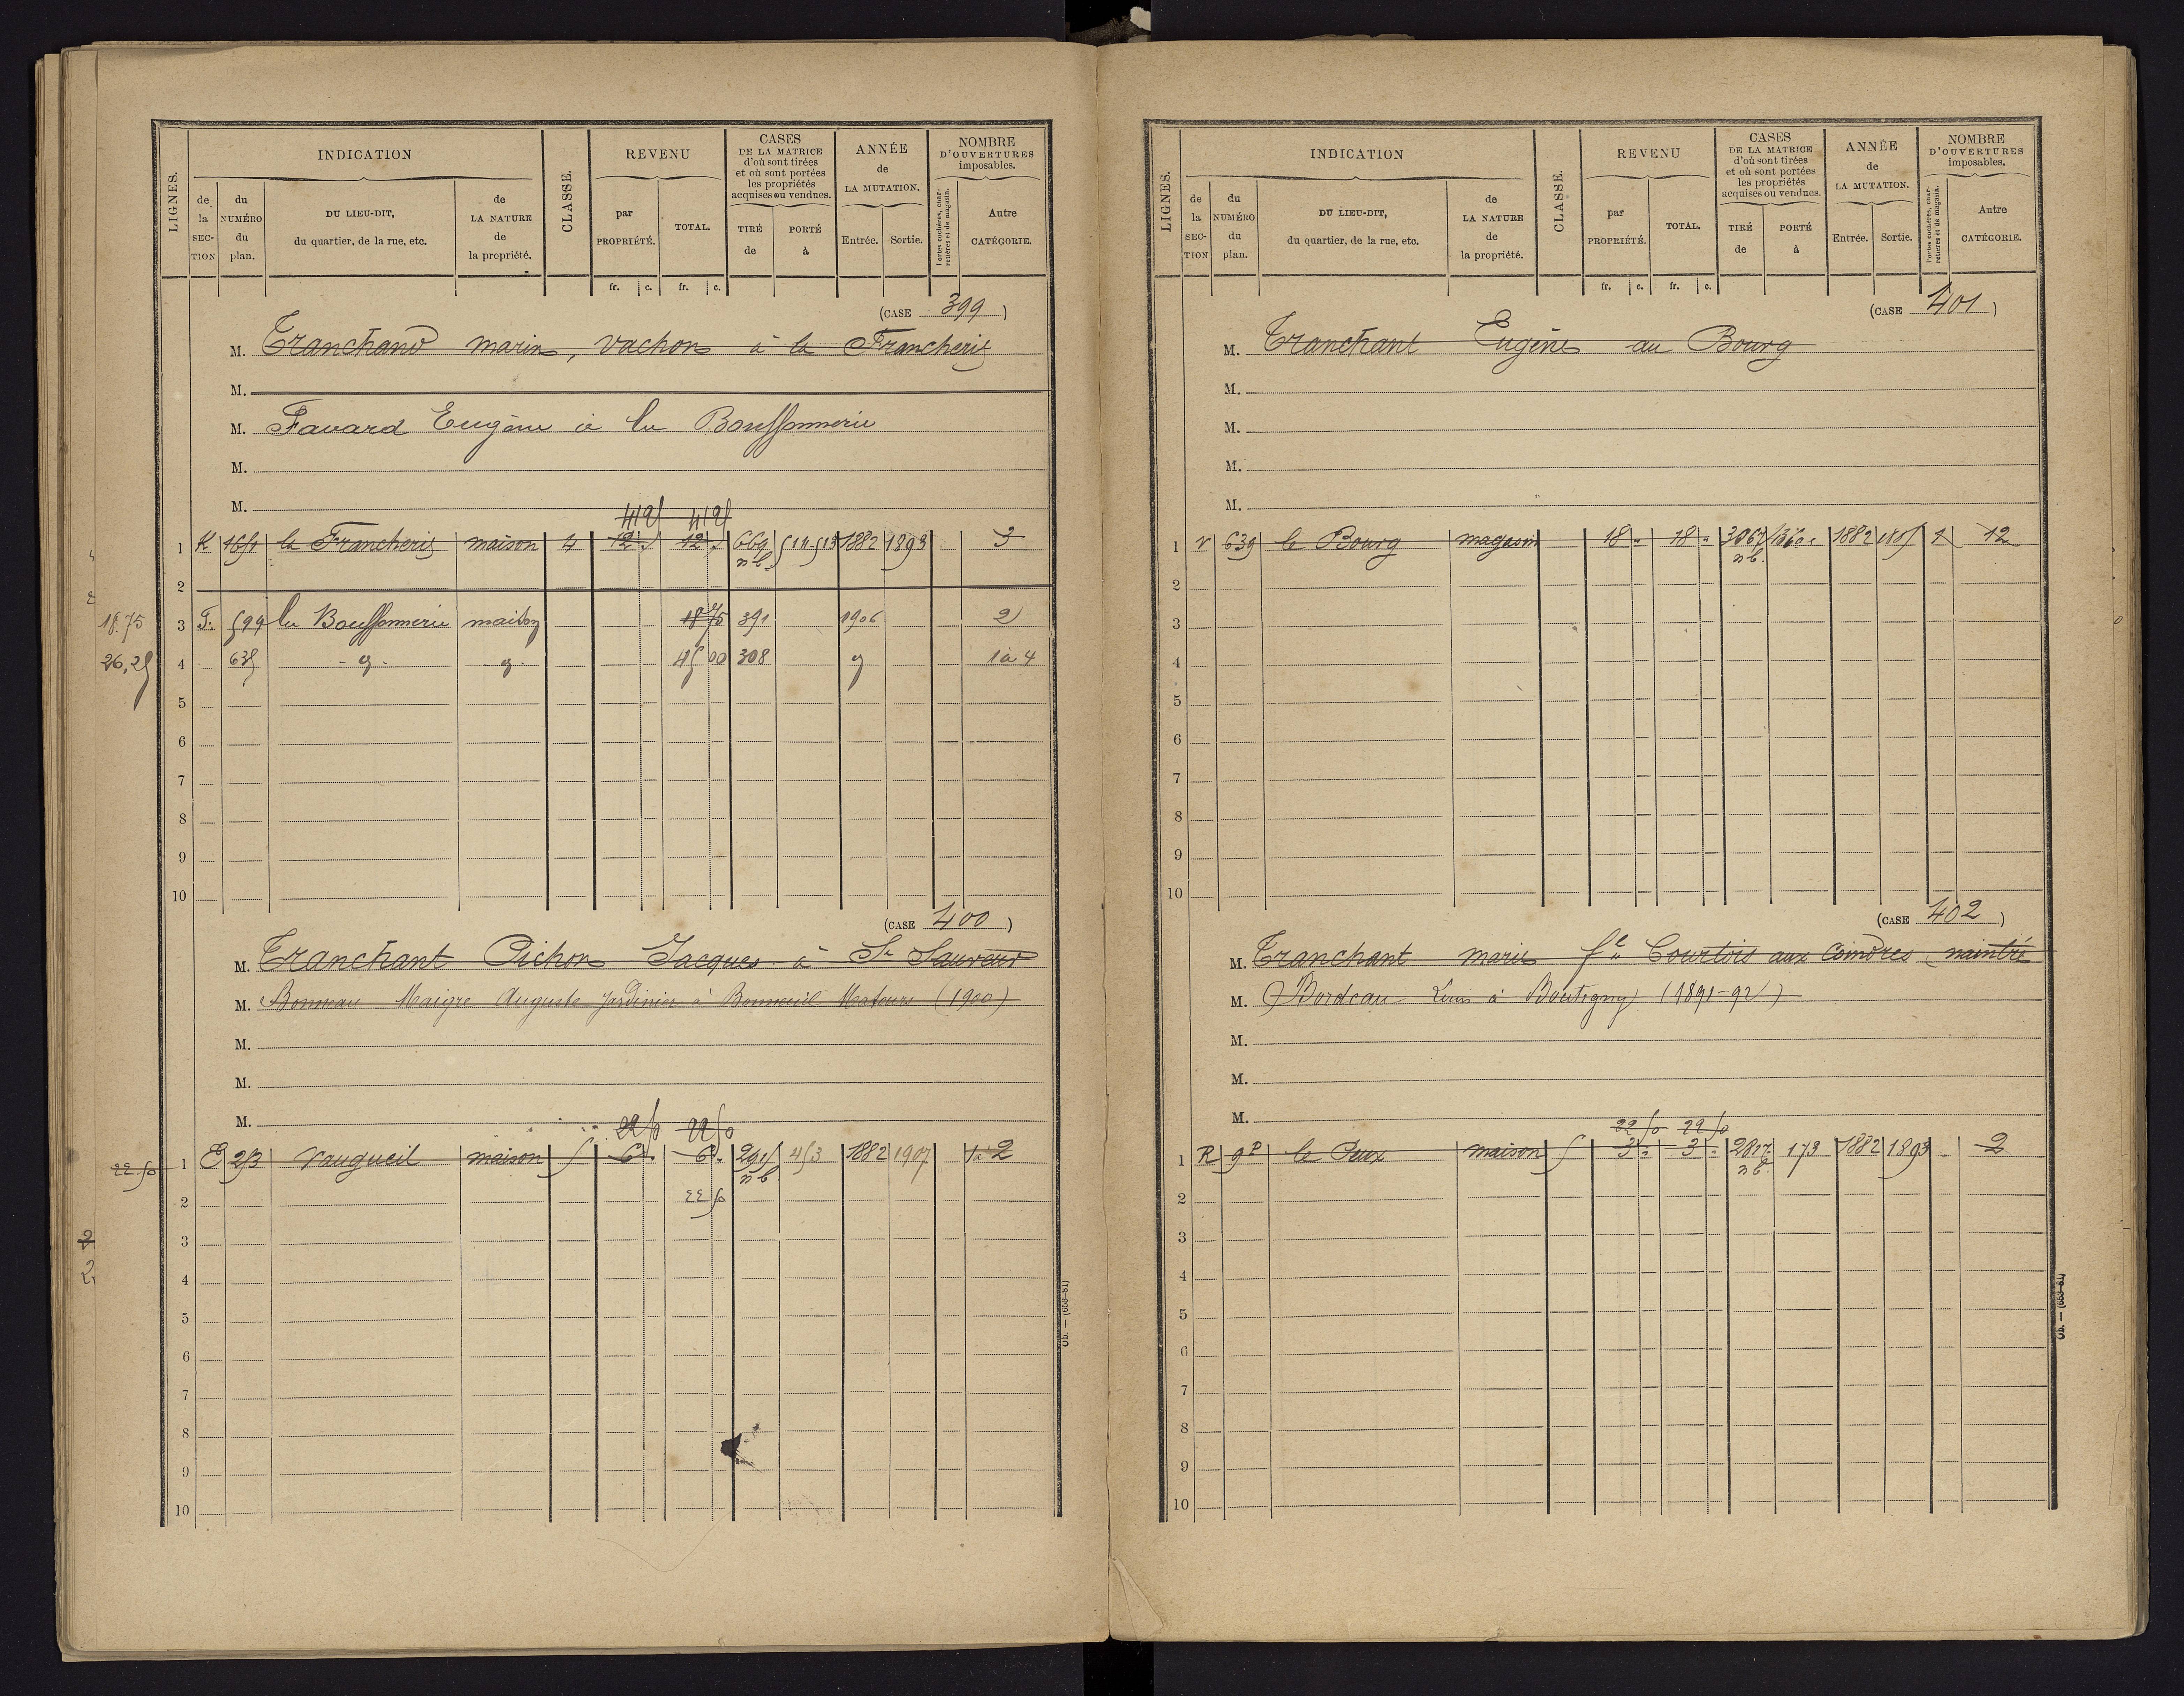 LIGNES.
INDICATION
de la SECTION
du NUMÉRO du plan.
DU LIEU-DIT, du quartier, de la rue, etc.
de LA NATURE de la propriété.
CLASSE.
REVENU
par PROPRIÉTÉ.
TOTAL.
CASES DE LA MATRICE d'où sont tirées et où sont portées les propriétés acquises ou vendues.
TIRÉ de
PORTÉ à
ANNÉE de LA MUTATION.
Entrée.
Sortie.
NOMBRE D'OUVERTURES imposables.
Portes cochères, charretières et de magasin.
Autre CATÉGORIE.
fr. c. fr. c.
(CASE 399)
M. Tranchand marin, vachon à la Francherie
M.
M. Favard Eugène à la Bouffonnerie
M.
M.
1 K la Francherie maison 4 12 12 669 nb 1882 1893 3
2
18.75 3 F. 599 la Bouffonnerie maison 18 75 391 1906 2
26,25 4 635 45 00 308 1 à 4
5
6
7
8
9
10
(CASE 400)
M. Tranchant Pichon Jacques à St Sauveur
M. Bonneau Maigre Auguste Jardinier à Bonneuil Matours (1900)
M.
M.
M.
22 50 22 50
22 50 1 E 253 Vaugueil maison 5 6 6 nb 453 1882 1907 2
2 22 50
3
4
5
6
7
8
9
10
Ob. — (653-81)
LIGNES.
INDICATION
de la SECTION
du NUMÉRO du plan.
DU LIEU-DIT, du quartier, de la rue, etc.
de LA NATURE de la propriété.
CLASSE.
REVENU
par PROPRIÉTÉ.
TOTAL.
CASES DE LA MATRICE d'où sont tirées et où sont portées les propriétés acquises ou vendues.
TIRÉ de
PORTÉ à
ANNÉE de LA MUTATION.
Entrée.
Sortie.
NOMBRE D'OUVERTURES imposables.
Portes cochères, charretières et de magasin.
Autre CATÉGORIE.
fr. c. fr. c.
(CASE 401)
M. Tranchant Eugène au Bourg
M.
M.
M.
M.
1 V 639 le Bourg magasin 18 " 18 " 3067 nb. 1882 1 12
2
3
4
5
6
7
8
9
10
(CASE 402)
M. Tranchant marie fe Courtois aux Coindres naintré
M. Bordeau Louis à Boutigny (1891-92)
M.
M.
M.
22 50 22 50
1 R 9P le Peux maison 5 3 " 3 " 2817 nb. 173 1882 1893 2
2
3
4
5
6
7
8
9
10
Ob. — (653-81)